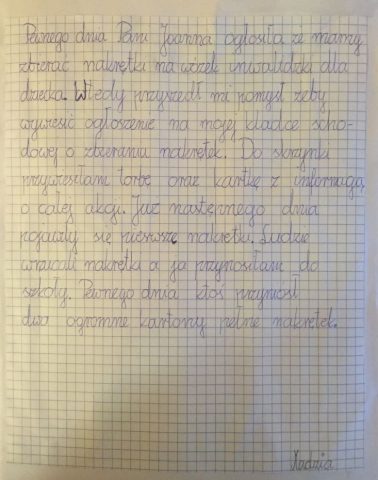 Pewnego dnia Pani Joanna ogłosiła że mamy
zbierać nakrętki na wózek inwalidzki dla
dziecka. Wtedy przyszedł mi pomysł żeby
wywiesić ogłoszenie na mojej kladce scho-
dowej o zbieraniu nakrętek. Do skrzynki
przywiesiłam torbę oraz kartkę z informacją
o całej akcji. Już następnego dnia
pojawiły się pierwsze nakrętki. Ludzie
wrzucali nakrętki a ja przynosiłam do
szkoły. Pewnego dnia ktoś przyniósł
dwa ogromne kartony pełne nakrętek.